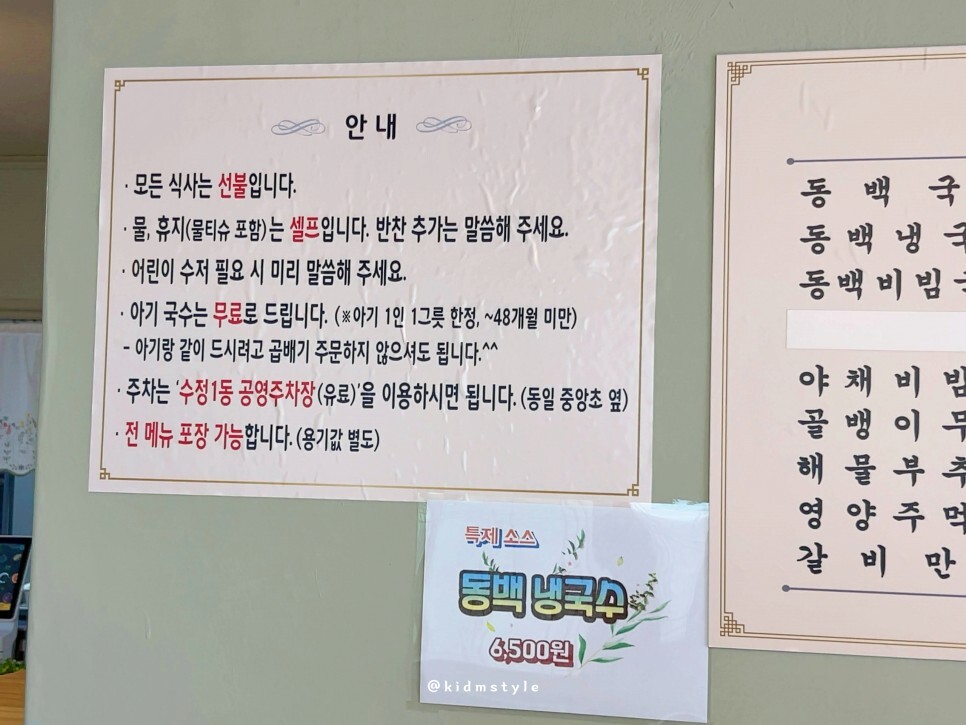 안내
· 모든 식사는 선불입니다.
· 물, 휴지(물티슈 포함)는 셀프입니다. 반찬 추가는 말씀해 주세요.
· 어린이 수저 필요 시 미리 말씀해 주세요.
· 아기 국수는 무료로 드립니다. (※아기 1인 1그릇 한정, ~48개월 미만)
- 아기랑 같이 드시려고 곱배기 주문하지 않으셔도 됩니다.^^
· 주차는 '수정1동 공영주차장(유료)'을 이용하시면 됩니다. (동일 중앙초 옆)
· 전 메뉴 포장 가능합니다. (용기값 별도)
특제 소스
동백 냉국수
6,500원
@kidmstyle
동백국
동백냉국
동백비빔
야채비빔
골뱅이무
해물부추
영양주먹
갈비만